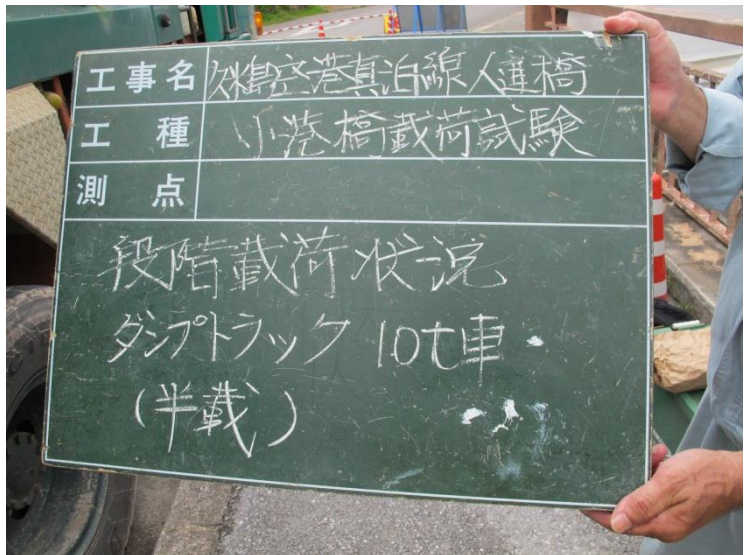 工事名 久米島空港真泊線人道橋
工種 小港橋載荷試験
測点
段階載荷状況
ダンプトラック 10t車
(半載)